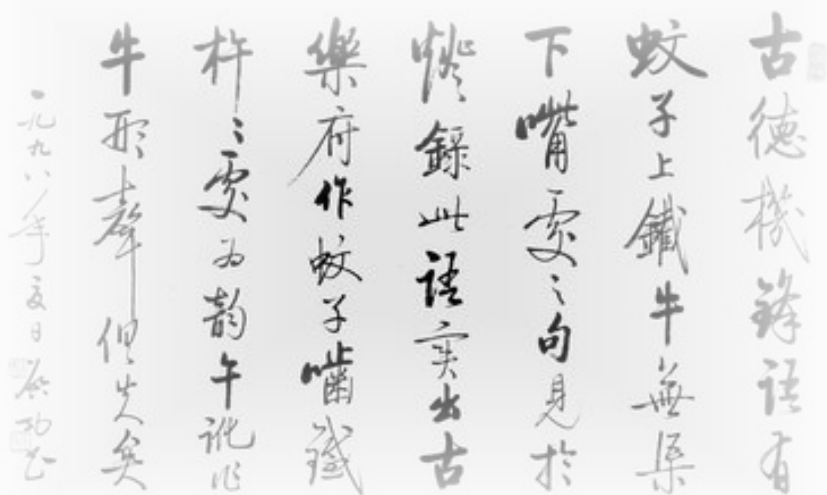 古德機鋒語有
蚊子上鐵牛無渠
下嘴處之句見於
燈錄此語實出古
樂府作蚊子嚙鐵
杵〻處為韵午訛作
牛形聲俱失矣
一九九八年夏日啟功書